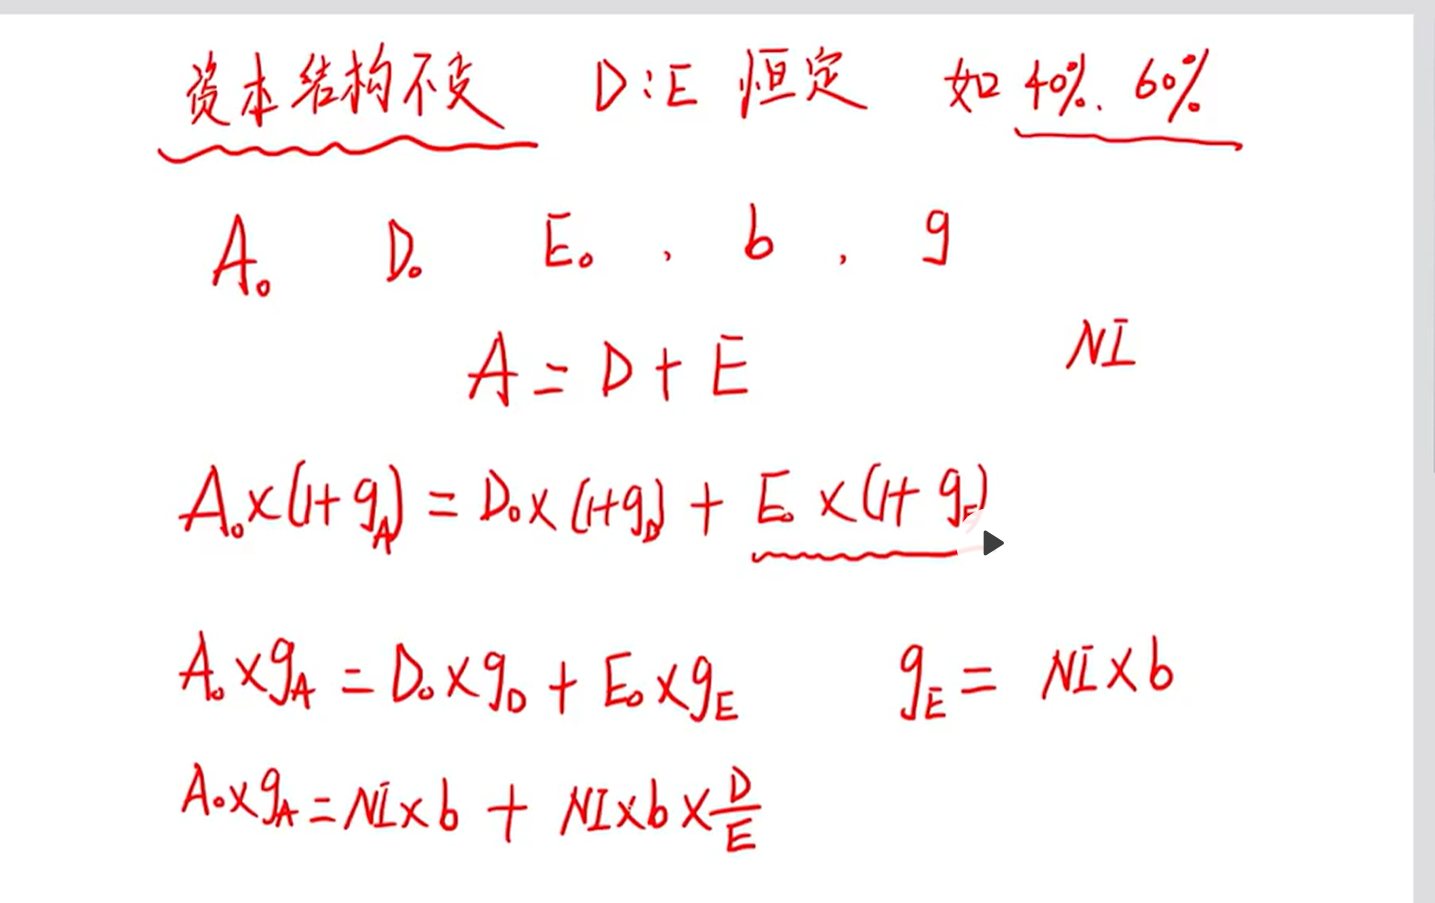 资本结构不变 D:E 恒定 如 40%. 60%
A₀ D₀ E₀ , b , g
A = D + E NI
A₀×(1+g_A) = D₀×(1+g_D) + E₀×(1+g_E)
A₀×g_A = D₀×g_D + E₀×g_E g_E = NI×b
A₀×g_A = NI×b + NI×b×D/E